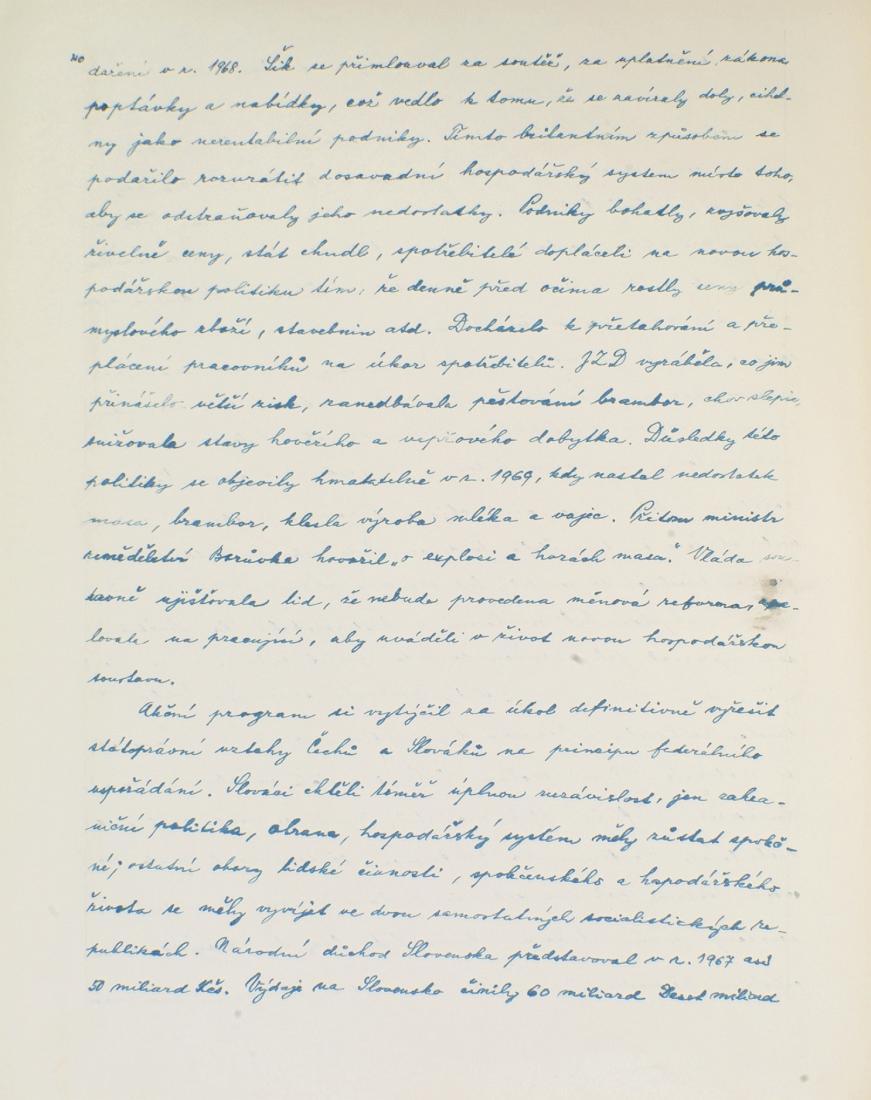 daření v r. 1968. Šik se přimlouval za soutěž, za uplatnění zákona
poptávky a nabídky, což vedlo k tomu, že se zavíraly doly, cihel-
ny jako nerentabilní podniky. Tímto britantním způsobem se
podařilo rozvrátit dosavadní hospodářský system místo toho,
aby se odstraňovaly jeho nedostatky. Podniky bohatly, zvyšovaly
živelně ceny, stát chudl, spotřebitelé dopláceli na novou hos-
podářskou politiku tím, že denně před očima rostly ceny prů-
myslového zboží, stavebnin atd. Docházelo k přetahování a pře-
plácení pracovníků na úkor spotřebitelů. JZD vyráběla, co jim
přinášelo větší zisk, zanedbávala pěstování brambor, chov slepic,
snižovala stavy hovězího a vepřového dobytka. Důsledky této
politiky se objevily hmatatelně v r. 1969, kdy nastal nedostatek
masa, brambor, klesla výroba mléka a vajec. Přitom ministr
zemědělství Borůvka hovořil „o explosi a horách masa." Vláda sou-
stavně ujišťovala lid, že nebude provedena měnová reforma,
lovala na pracující, aby uváděli v život novou hospodářskou
soustavu.
Akční program si vytýčil za úkol definitivně vyřešit
státoprávní vztahy Čechů a Slováků na principu federálního
uspořádání. Slováci chtěli téměř úplnou nezávislost, jen zahra-
niční politika, obrana, hospodářský systém měly zůstat společ-
né; ostatní obory lidské činnosti, společenského a hopodářského
života se měly vyvíjet ve dvou samostatných socialistických re-
publikách. Národní důchod Slovenska představoval v r. 1967 asi
50 miliard Kčs. Výdaje na Slovensko činily 60 miliard Deset miliard